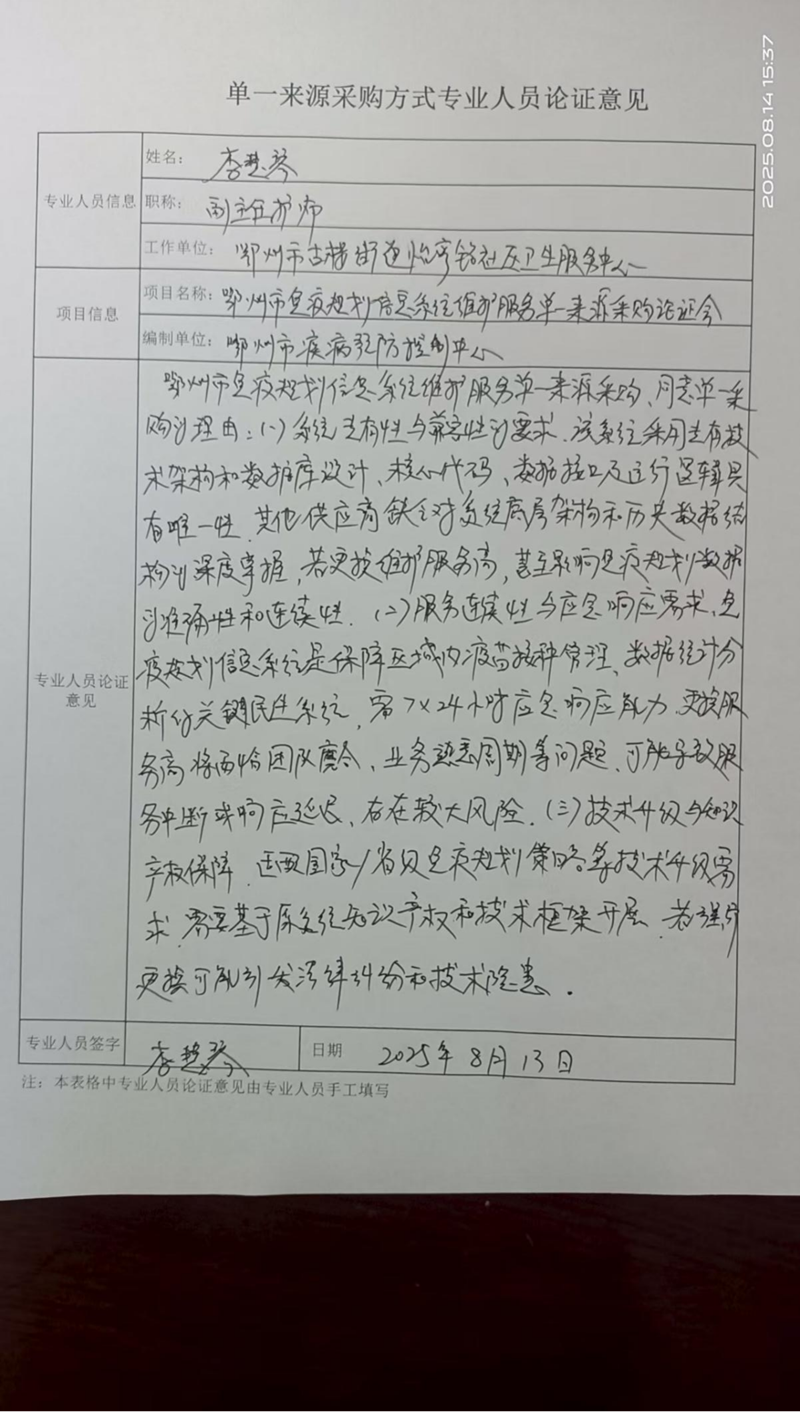 2025.08.14 15:37
单一来源采购方式专业人员论证意见
专业人员信息
姓名：李慧琴
职称：副主任护师
工作单位：鄂州市古楼街道怡亭铭社区卫生服务中心
项目信息
项目名称：鄂州市免疫规划信息系统维护服务单一来源采购论证会
编制单位：鄂州市疾病预防控制中心
专业人员论证意见
鄂州市免疫规划信息系统维护服务单一来源采购、同意单一采
购的理由：(一)系统专有性与兼容性的要求、该系统采用专有技
术架构和数据库设计、核心代码、数据接口及运行逻辑具
有唯一性、其他供应商缺乏对系统底层架构和历史数据结
构的深度掌握，若更换维护服务商，甚至影响免疫规划数据
的准确性和连续性.(二)服务连续性与应急响应需求、免
疫规划信息系统是保障区域内疫苗接种管理、数据统计分
析的关键民生系统，需7×24小时应急响应能力.更换服
务商将面临团队磨合、业务熟悉周期等问题、可能导致服
务中断或响应延迟、存在较大风险.(三)技术升级与知识
产权保障.适配国家/省级免疫规划策略等技术升级需
求.需要基于原系统知识产权和技术框架开展.若强行
更换可能引发法律纠纷和技术隐患.
专业人员签字 李慧琴 日期 2025年8月13日
注：本表格中专业人员论证意见由专业人员手工填写